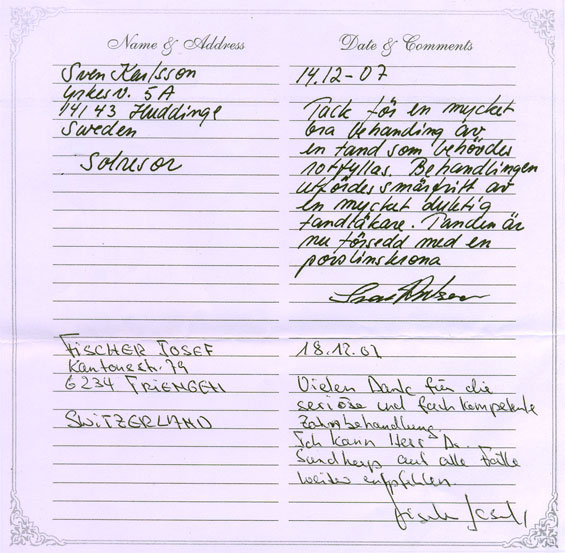 Name & Address
Sven Karlsson
Yrkesv. 5A
14143 Huddinge
Sweden
Solresor
Date & Comments
14.12-07
Tack för en mycket
bra behanding av
en tand som behövdes
rotfyllas. Behandlingen
utfördes smärtfritt av
en mycket duktig
tandläkare. Tanden är
nu försedd med en
porslinskrona
FISCHER JOSEF
Kantonsstr. 79
6234 TRIENGEN
SWITZERLAND
18.12.07
Vielen Dank für die
seriöse und fachkompetente
Zahnbehandlung.
Ich kann Herr Dr.
auf alle Fälle
weiter empfehlen.